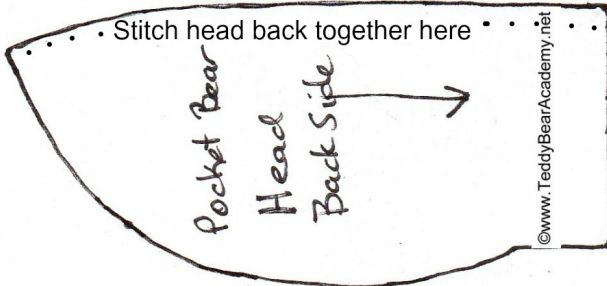 Stitch head back together here
Pocket Bear
Head
Back Side
©www.TeddyBearAcademy.net